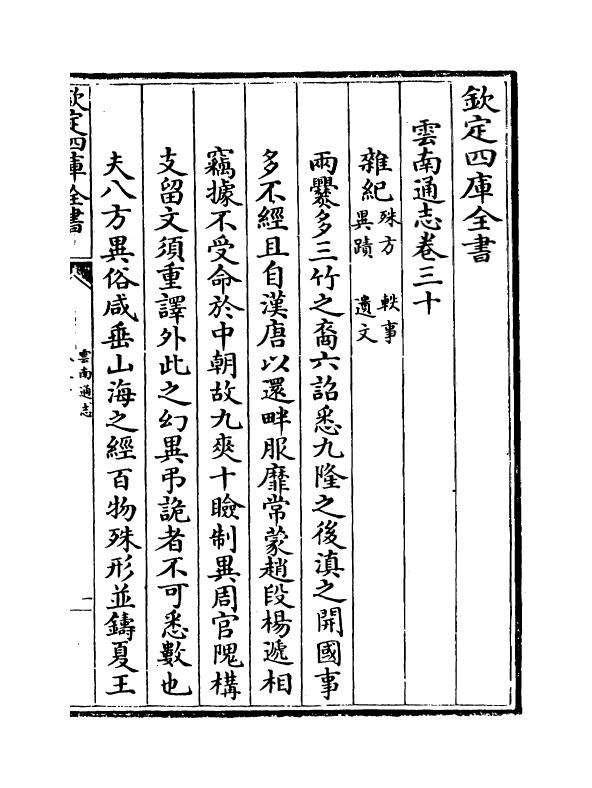 欽定四庫全書
雲南通志卷三十
雜紀殊方 軼事
異蹟 遺文
兩爨多三竹之裔六詔悉九隆之後滇之開國事
多不經且自漢唐以還畔服靡常蒙趙段楊遞相
竊據不受命於中朝故九爽十瞼制異周官隗構
支留文須重譯外此之幻異弔詭者不可悉數也
夫八方異俗咸垂山海之經百物殊形並鑄夏王
欽定四庫全書
雲南通志
一